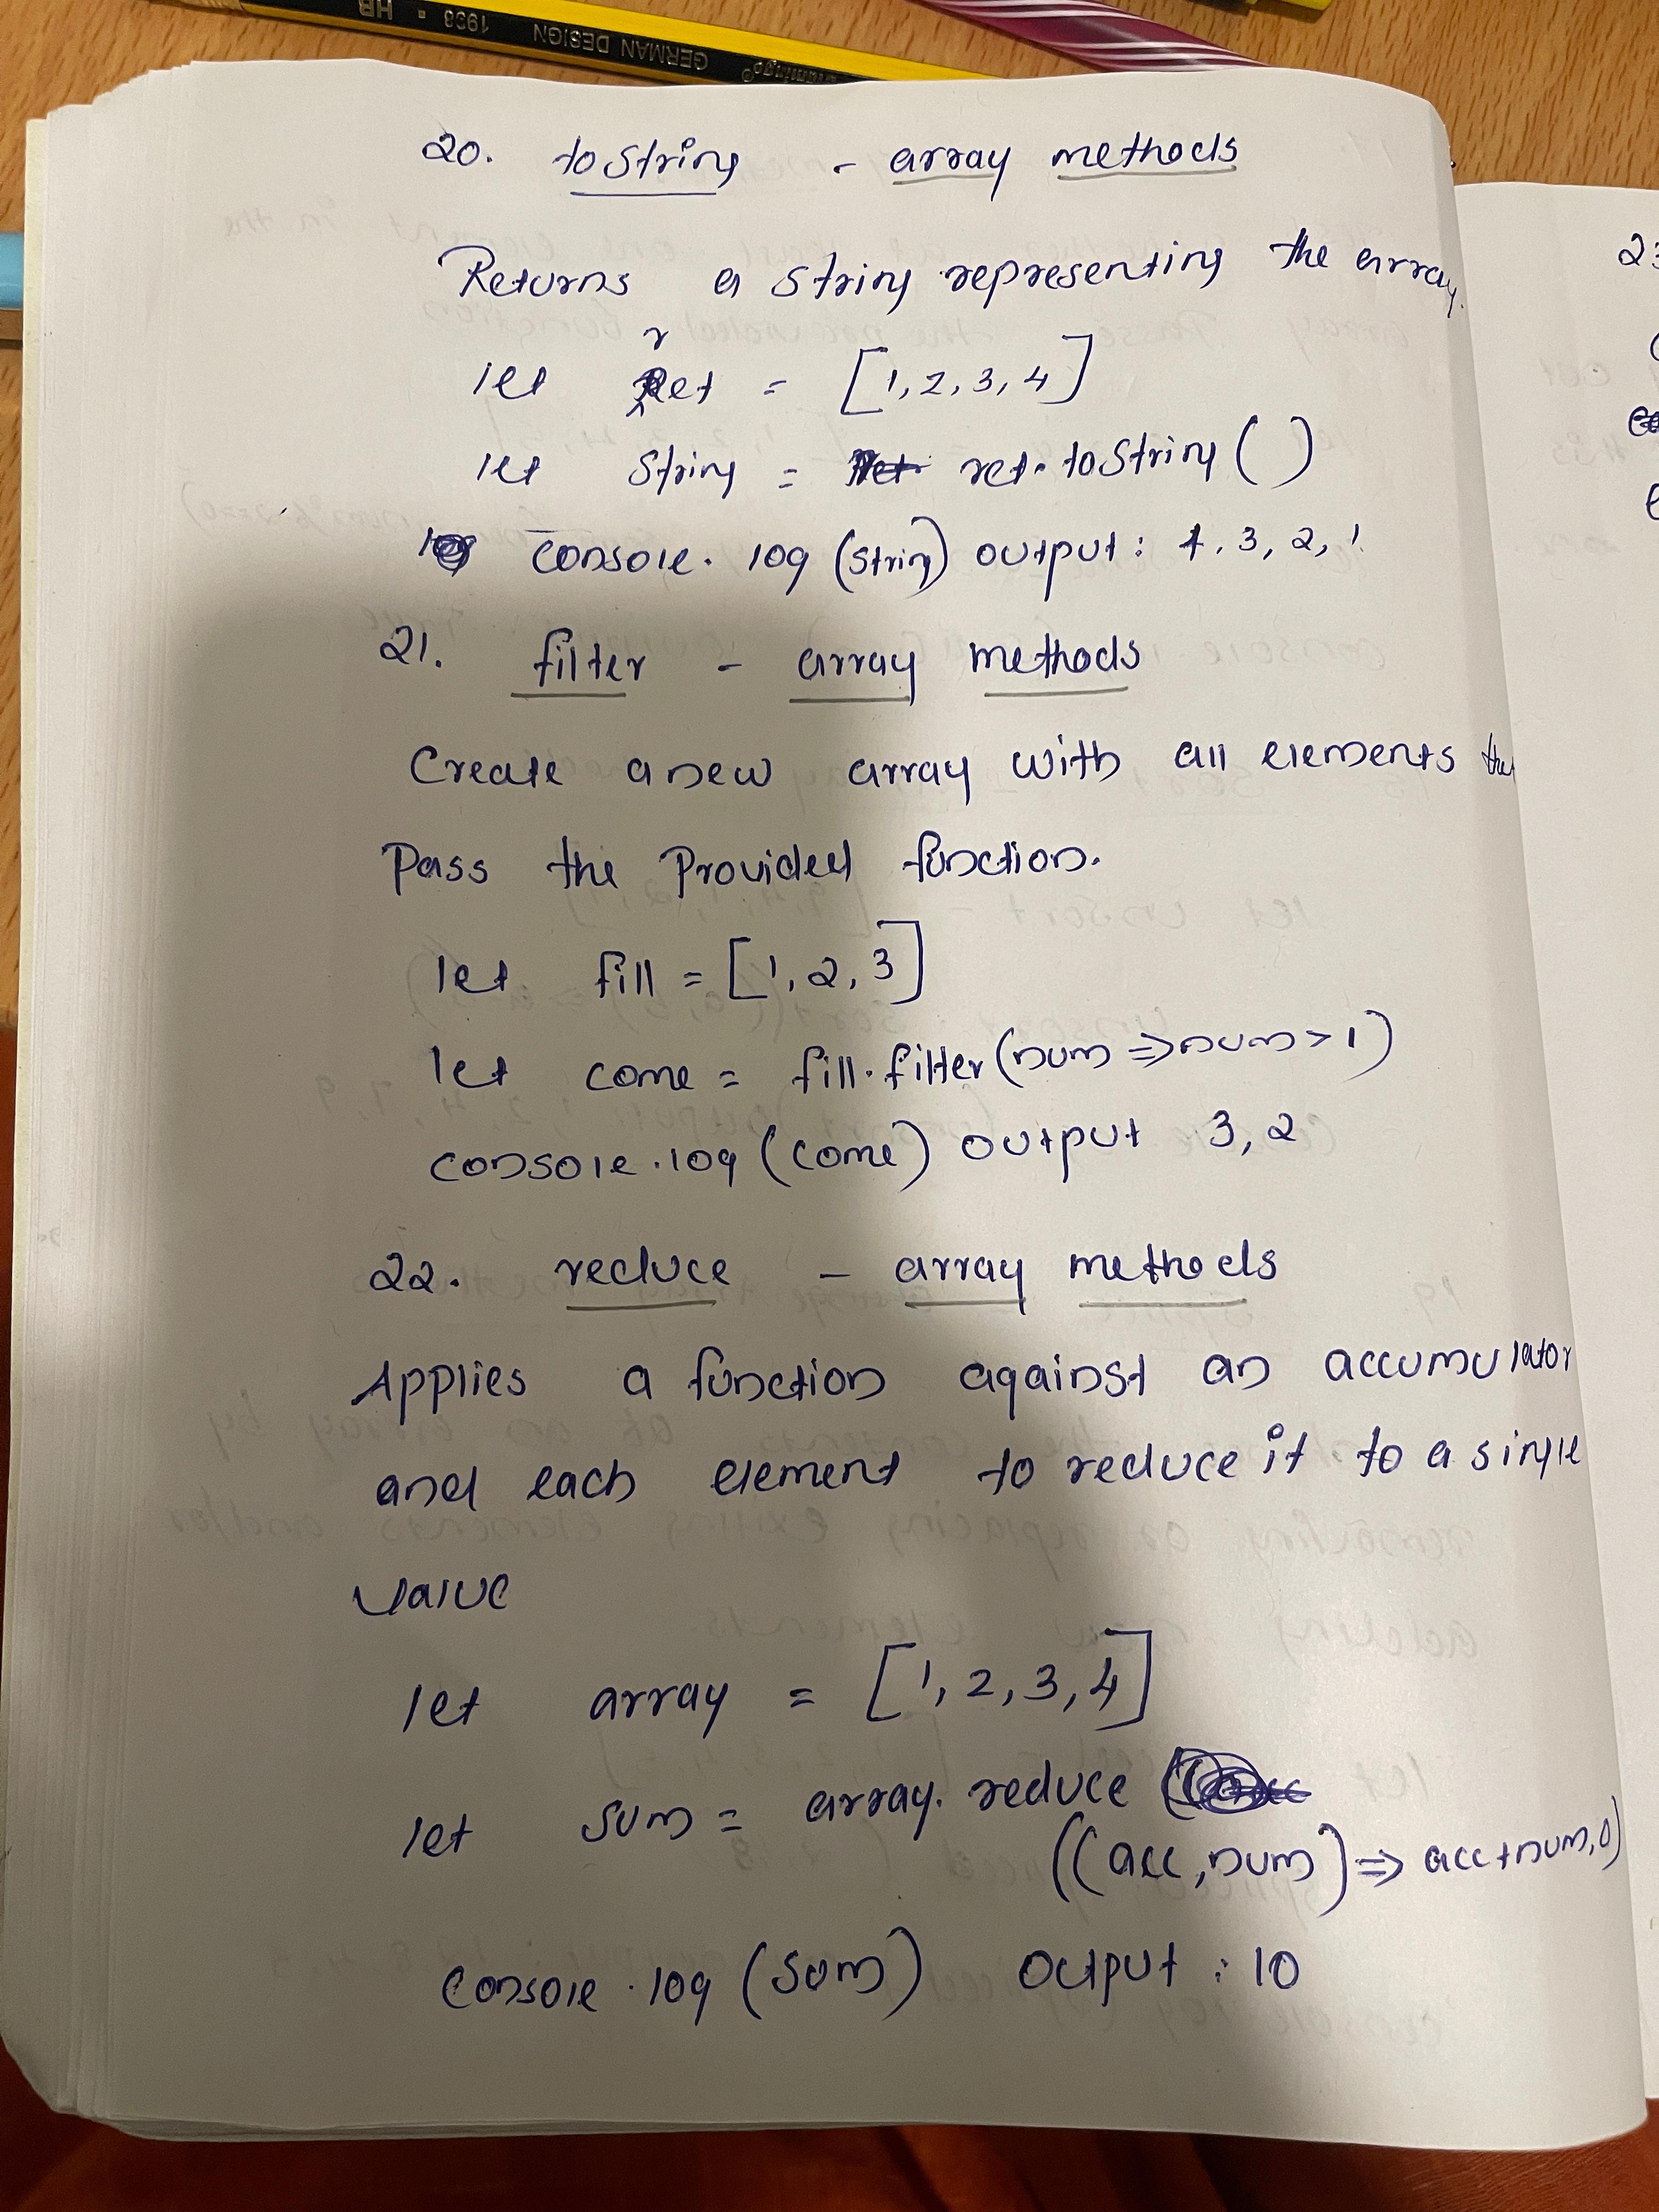 GERMAN DESIGN 1998 • HB
20. toString - array methods
Returns a string representing the array.
let ret = [1, 2, 3, 4]
let string = ret. toString ( )
console. log (string) output : 4, 3, 2, 1
21. filter - array methods
Create a new array with all elements that
Pass the Provided function.
let fill = [1, 2, 3]
let come = fill. filter (num => num > 1)
console. log (come) output 3, 2
22. reduce - array methods
Applies a function against an accumulator
and each element to reduce it to a single
value
let array = [1, 2, 3, 4]
let sum = array. reduce
((acc, num) => acc + num, 0)
console. log (sum) output : 10